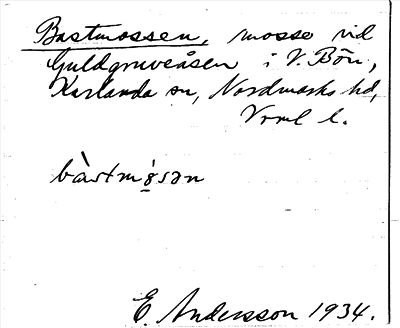 Bastmossen, mosse vid
Guldgruveåsen i V. Bön,
Karlanda sn, Nordmarks hd,
Vrml l.
bàstmǫ̀sən
E Andersson 1934.